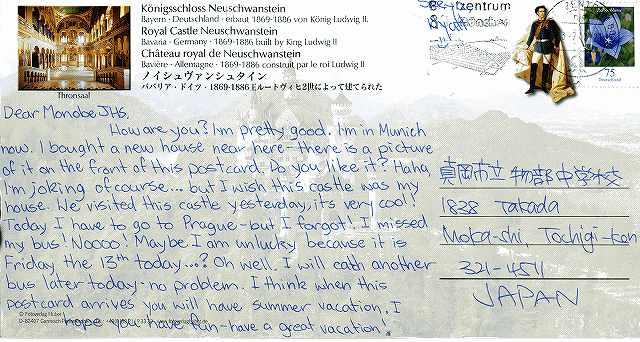 Königsschloss Neuschwanstein
Bayern · Deutschland · erbaut 1869-1886 von König Ludwig II.
Royal Castle Neuschwanstein
Bavaria · Germany · 1869-1886 built by King Ludwig II
Château royal de Neuschwanstein
Bavière · Allemagne · 1869-1886 construit par le roi Ludwig II
ノイシュヴァンシュタイン
バパリア・ドイツ・1869-1886 Eルートヴィヒ2世によって建てられた
Thronsaal
zentrum
75
Deutschland
Dear Monobe JHS,
How are you? I'm pretty good. I'm in Munich
now. I bought a new house near here - there is a picture
of it on the front of this postcard. Do you like it? Haha,
I'm joking of course... but I wish this castle was my
house. We visited this castle yesterday, it's very cool!
Today I have to go to Prague - but I forgot! I missed
my bus! Noooo! Maybe I am unlucky because it is
Friday the 13th today...? Oh well. I will catch another
bus later today - no problem. I think when this
postcard arrives you will have summer vacation. I
hope you have fun - have a great vacation!
真岡市立物部中学校
1828 Takada
Moka-shi, Tochigi-ken
321-4511
JAPAN
© Fotoverlag Huber